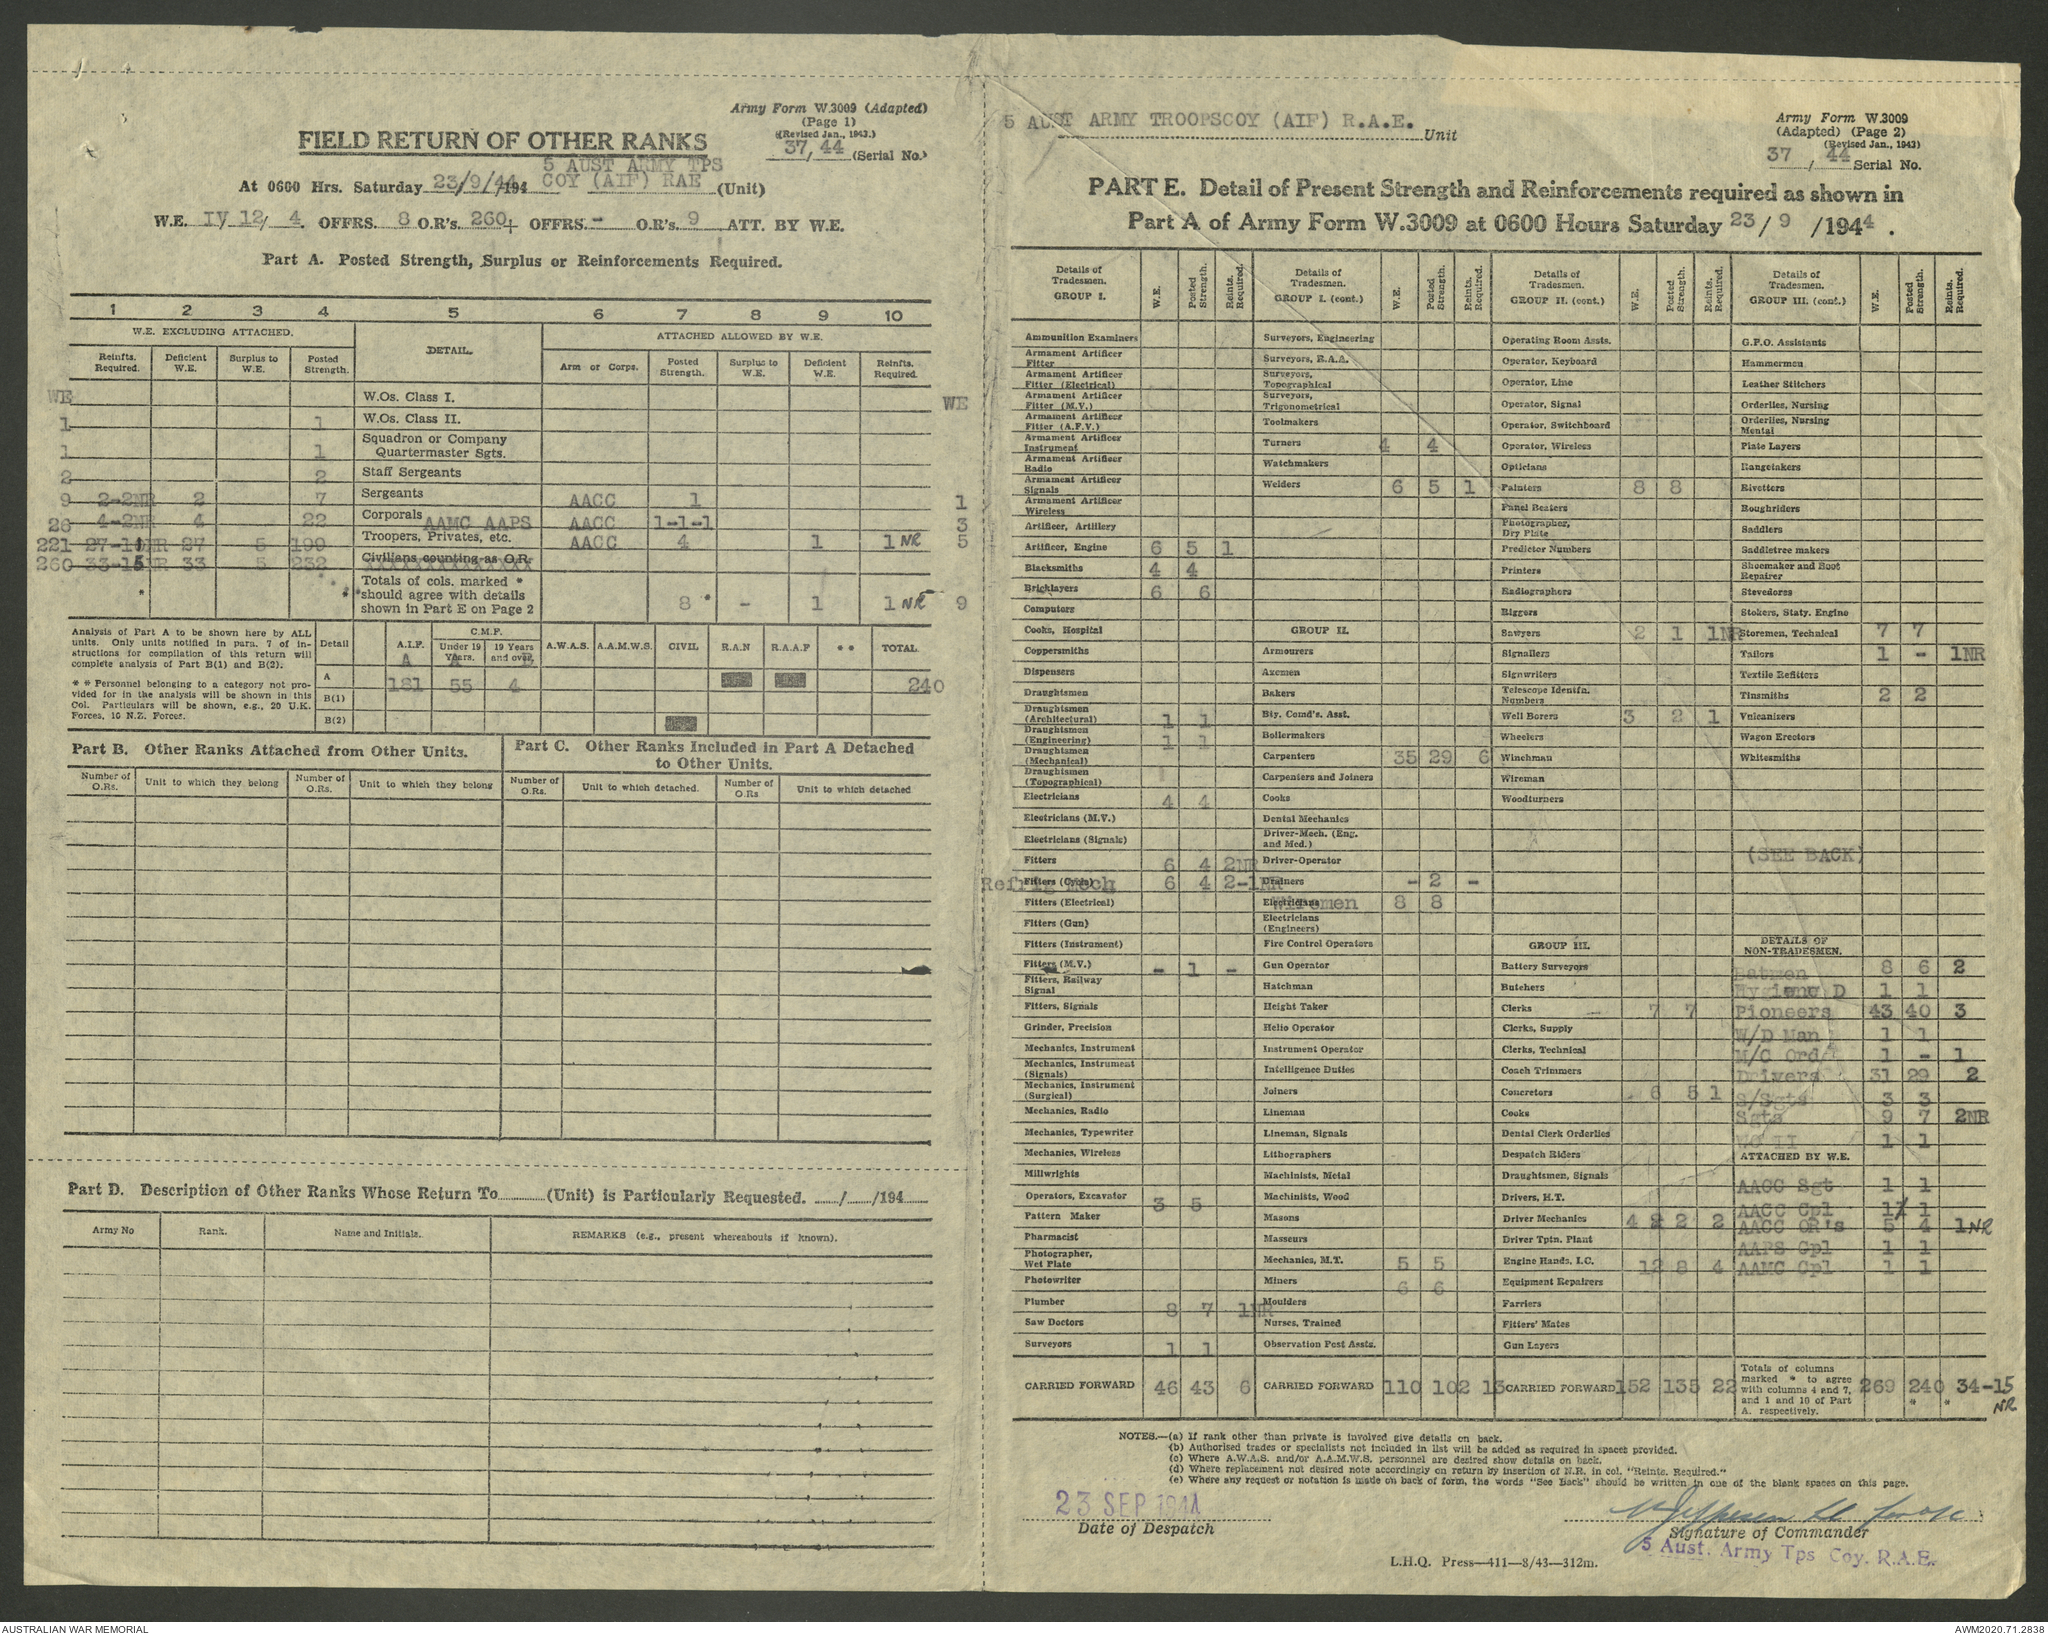 Army Form W.3009 (Adapted)
(Page 1)
(Revised Jan., 1943.)
37, 44 (Serial No.)
FIELD RETURN OF OTHER RANKS
At 0600 Hrs. Saturday 23/9/44 194 5 AUST ARMY TPS COY (AIF) RAE (Unit)
W.E. IV 12/4. OFFRS. 8 O.R's. 260+ OFFRS. - O.R's. 9 ATT. BY W.E.
Part A. Posted Strength, Surplus or Reinforcements Required.
1 2 3 4 5 6 7 8 9 10
W.E. EXCLUDING ATTACHED. DETAIL. ATTACHED ALLOWED BY W.E.
Reinfts. Required. Deficient W.E. Surplus to W.E. Posted Strength. Arm or Corps. Posted Strength. Surplus to W.E. Deficient W.E. Reinfts. Required.
WE W.Os. Class I. WE
1 1 W.Os. Class II.
1 1 Squadron or Company Quartermaster Sgts.
2 2 Staff Sergeants
9 2-2NR 2 7 Sergeants AACC 1 1
26 4-2NR 4 22 Corporals AAMC AAPS AACC 1-1-1 3
221 27-10NR 27 5 199 Troopers, Privates, etc. AACC 4 1 1 NR 5
260 33-15NR 33 5 232 Civilians counting as O.R.
* * Totals of cols. marked * should agree with details shown in Part E on Page 2 8 * - 1 1 NR 9
Analysis of Part A to be shown here by ALL units. Only units notified in para. 7 of instructions for compilation of this return will complete analysis of Part B(1) and B(2).
* * Personnel belonging to a category not provided for in the analysis will be shown in this Col. Particulars will be shown, e.g., 20 U.K. Forces, 10 N.Z. Forces.
Detail A.I.F. C.M.F. Under 19 Years. 19 Years and over. A.W.A.S. A.A.M.W.S. CIVIL R.A.N R.A.A.F * * TOTAL
A 181 55 4 240
B(1)
B(2)
Part B. Other Ranks Attached from Other Units.
Part C. Other Ranks Included in Part A Detached to Other Units.
Number of O.Rs. Unit to which they belong Number of O.Rs. Unit to which they belong Number of O.Rs. Unit to which detached. Number of O.Rs Unit to which detached
Part D. Description of Other Ranks Whose Return To (Unit) is Particularly Requested. / /194
Army No Rank. Name and Initials. REMARKS (e.g., present whereabouts if known).
5 AUST ARMY TROOPSCOY (AIF) R.A.E. Unit
Army Form W.3009
(Adapted) (Page 2)
(Revised Jan., 1943)
37 / 44 Serial No.
PART E. Detail of Present Strength and Reinforcements required as shown in
Part A of Army Form W.3009 at 0600 Hours Saturday 23/ 9 /1944.
Details of Tradesmen. GROUP I. W.E. Posted Strength. Reints. Required.
Ammunition Examiners
Armament Artificer Fitter
Armament Artificer Fitter (Electrical)
Armament Artificer Fitter (M.V.)
Armament Artificer Fitter (A.F.V.)
Armament Artificer Instrument
Armament Artificer Radio
Armament Artificer Signals
Armament Artificer Wireless
Artificer, Artillery
Artificer, Engine 6 5 1
Blacksmiths 4 4
Bricklayers 6 6
Computors
Cooks, Hospital
Coppersmiths
Dispensers
Draughtsmen
Draughtsmen (Architectural) 1 1
Draughtsmen (Engineering) 1 1
Draughtsmen (Mechanical)
Draughtsmen (Topographical)
Electricians 4 4
Electricians (M.V.)
Electricians (Signals)
Fitters 6 4 2NR
Fitters (Cycle) Refrig Mech 6 4 2-1NR
Fitters (Electrical)
Fitters (Gun)
Fitters (Instrument)
Fitters (M.V.) - 1 -
Fitters, Railway Signal
Fitters, Signals
Grinder, Precision
Mechanics, Instrument
Mechanics, Instrument (Signals)
Mechanics, Instrument (Surgical)
Mechanics, Radio
Mechanics, Typewriter
Mechanics, Wireless
Millwrights
Operators, Excavator 3 5
Pattern Maker
Pharmacist
Photographer, Wet Plate
Photowriter
Plumber 8 7 1NR
Saw Doctors
Surveyors 1 1
CARRIED FORWARD 46 43 6
Details of Tradesmen. GROUP I. (cont.) W.E. Posted Strength. Reints. Required.
Surveyors, Engineering
Surveyors, R.A.A.
Surveyors, Topographical
Surveyors, Trigonometrical
Toolmakers
Turners 4 4
Watchmakers
Welders 6 5 1
GROUP II.
Armourers
Axemen
Bakers
Bty. Comd's. Asst.
Boilermakers
Carpenters 35 29 6
Carpenters and Joiners
Cooks
Dental Mechanics
Driver-Mech. (Eng. and Med.)
Driver-Operator
Drainers - 2 -
Electricians Wiremen 8 8
Electricians (Engineers)
Fire Control Operators
Gun Operator
Hatchman
Height Taker
Helio Operator
Instrument Operator
Intelligence Duties
Joiners
Lineman
Lineman, Signals
Lithographers
Machinists, Metal
Machinists, Wood
Masons
Masseurs
Mechanics, M.T. 5 5
Miners 6 6
Moulders
Nurses, Trained
Observation Post Assts.
CARRIED FORWARD 110 102 13
Details of Tradesmen. GROUP II. (cont.) W.E. Posted Strength. Reints. Required.
Operating Room Assts.
Operator, Keyboard
Operator, Line
Operator, Signal
Operator, Switchboard
Operator, Wireless
Opticians
Painters 8 8
Panel Beaters
Photographer, Dry Plate
Predictor Numbers
Printers
Radiographers
Riggers
Sawyers 2 1 1NR
Signallers
Signwriters
Telescope Identfn. Numbers
Well Borers 3 2 1
Wheelers
Winchman
Wireman
Woodturners
GROUP III.
Battery Surveyors
Butchers
Clerks 7 7
Clerks, Supply
Clerks, Technical
Coach Trimmers
Concretors 6 5 1
Cooks
Dental Clerk Orderlies
Despatch Riders
Draughtsmen, Signals
Drivers, H.T.
Driver Mechanics 4 2 2 2
Driver Tptn. Plant
Engine Hands, I.C. 12 8 4
Equipment Repairers
Farriers
Fitters' Mates
Gun Layers
CARRIED FORWARD 152 135 22
Details of Tradesmen. GROUP III. (cont.) W.E. Posted Strength. Reints. Required.
G.P.O. Assistants
Hammermen
Leather Stitchers
Orderlies, Nursing
Orderlies, Nursing Mental
Plate Layers
Rangetakers
Rivetters
Roughriders
Saddlers
Saddletree makers
Shoemaker and Boot Repairer
Stevedores
Stokers, Staty. Engine
Storemen, Technical 7 7
Tailors 1 - 1NR
Textile Refitters
Tinsmiths 2 2
Vulcanizers
Wagon Erectors
Whitesmiths
(SEE BACK)
DETAILS OF NON-TRADESMEN.
Batmen 8 6 2
Hygiene D 1 1
Pioneers 43 40 3
W/D Man 1 1
M/C Ord 1 - 1
Drivers 31 29 2
S/Sgts 3 3
Sgts 9 7 2NR
WO II 1 1
ATTACHED BY W.E.
AACC Sgt 1 1
AACC Cpl 1 1
AACC OR's 5 4 1NR
AAPS Cpl 1 1
AAMC Cpl 1 1
Totals of columns marked * to agree with columns 4 and 7, and 1 and 10 of Part A. respectively. 269 240 * 34-15 NR *
NOTES.—(a) If rank other than private is involved give details on back.
(b) Authorised trades or specialists not included in list will be added as required in spaces provided.
(c) Where A.W.A.S. and/or A.A.M.W.S. personnel are desired show details on back.
(d) Where replacement not desired note accordingly on return by insertion of N.R. in col. "Reints. Required."
(e) Where any request or notation is made on back of form, the words "See Back" should be written in one of the blank spaces on this page.
23 SEP 1944
Date of Despatch
Signature of Commander
5 Aust. Army Tps Coy. R.A.E.
L.H.Q. Press—411—8/43—312m.
AUSTRALIAN WAR MEMORIAL
AWM2020.71.2838